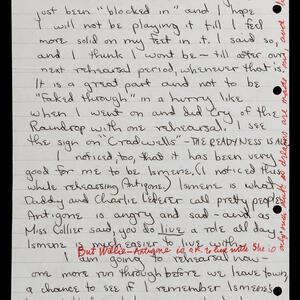 just been "blocked in" and I hope
I will not be playing it till I feel
more solid on my feet in it. I said so,
and I think I won't be – till after our
next rehearsal period, whenever that is.
It is a great part and not to be
"faked through" in a hurry like
when I went on and did Cry of the
Raindrop with one rehearsal. I see
the sign on "Cradwells" – THE READYNESS IS ALL
I noticed, too, that it has been very
good for me to be Ismene, (I noticed this
while rehearsing Antigone) Ismene is what
Daddy and Charlie Lederer call pretty people.
Antigone is angry and sad – and as
Miss Collier said, you do live a role all day.
Ismene is much easier to live with.
But Willie – Antigone is o.k. to live with She is
I am going to rehearsal now –
one more run through before we leave town,
a chance to see if I remember Ismene's
only such stuff as dreams are made on, and